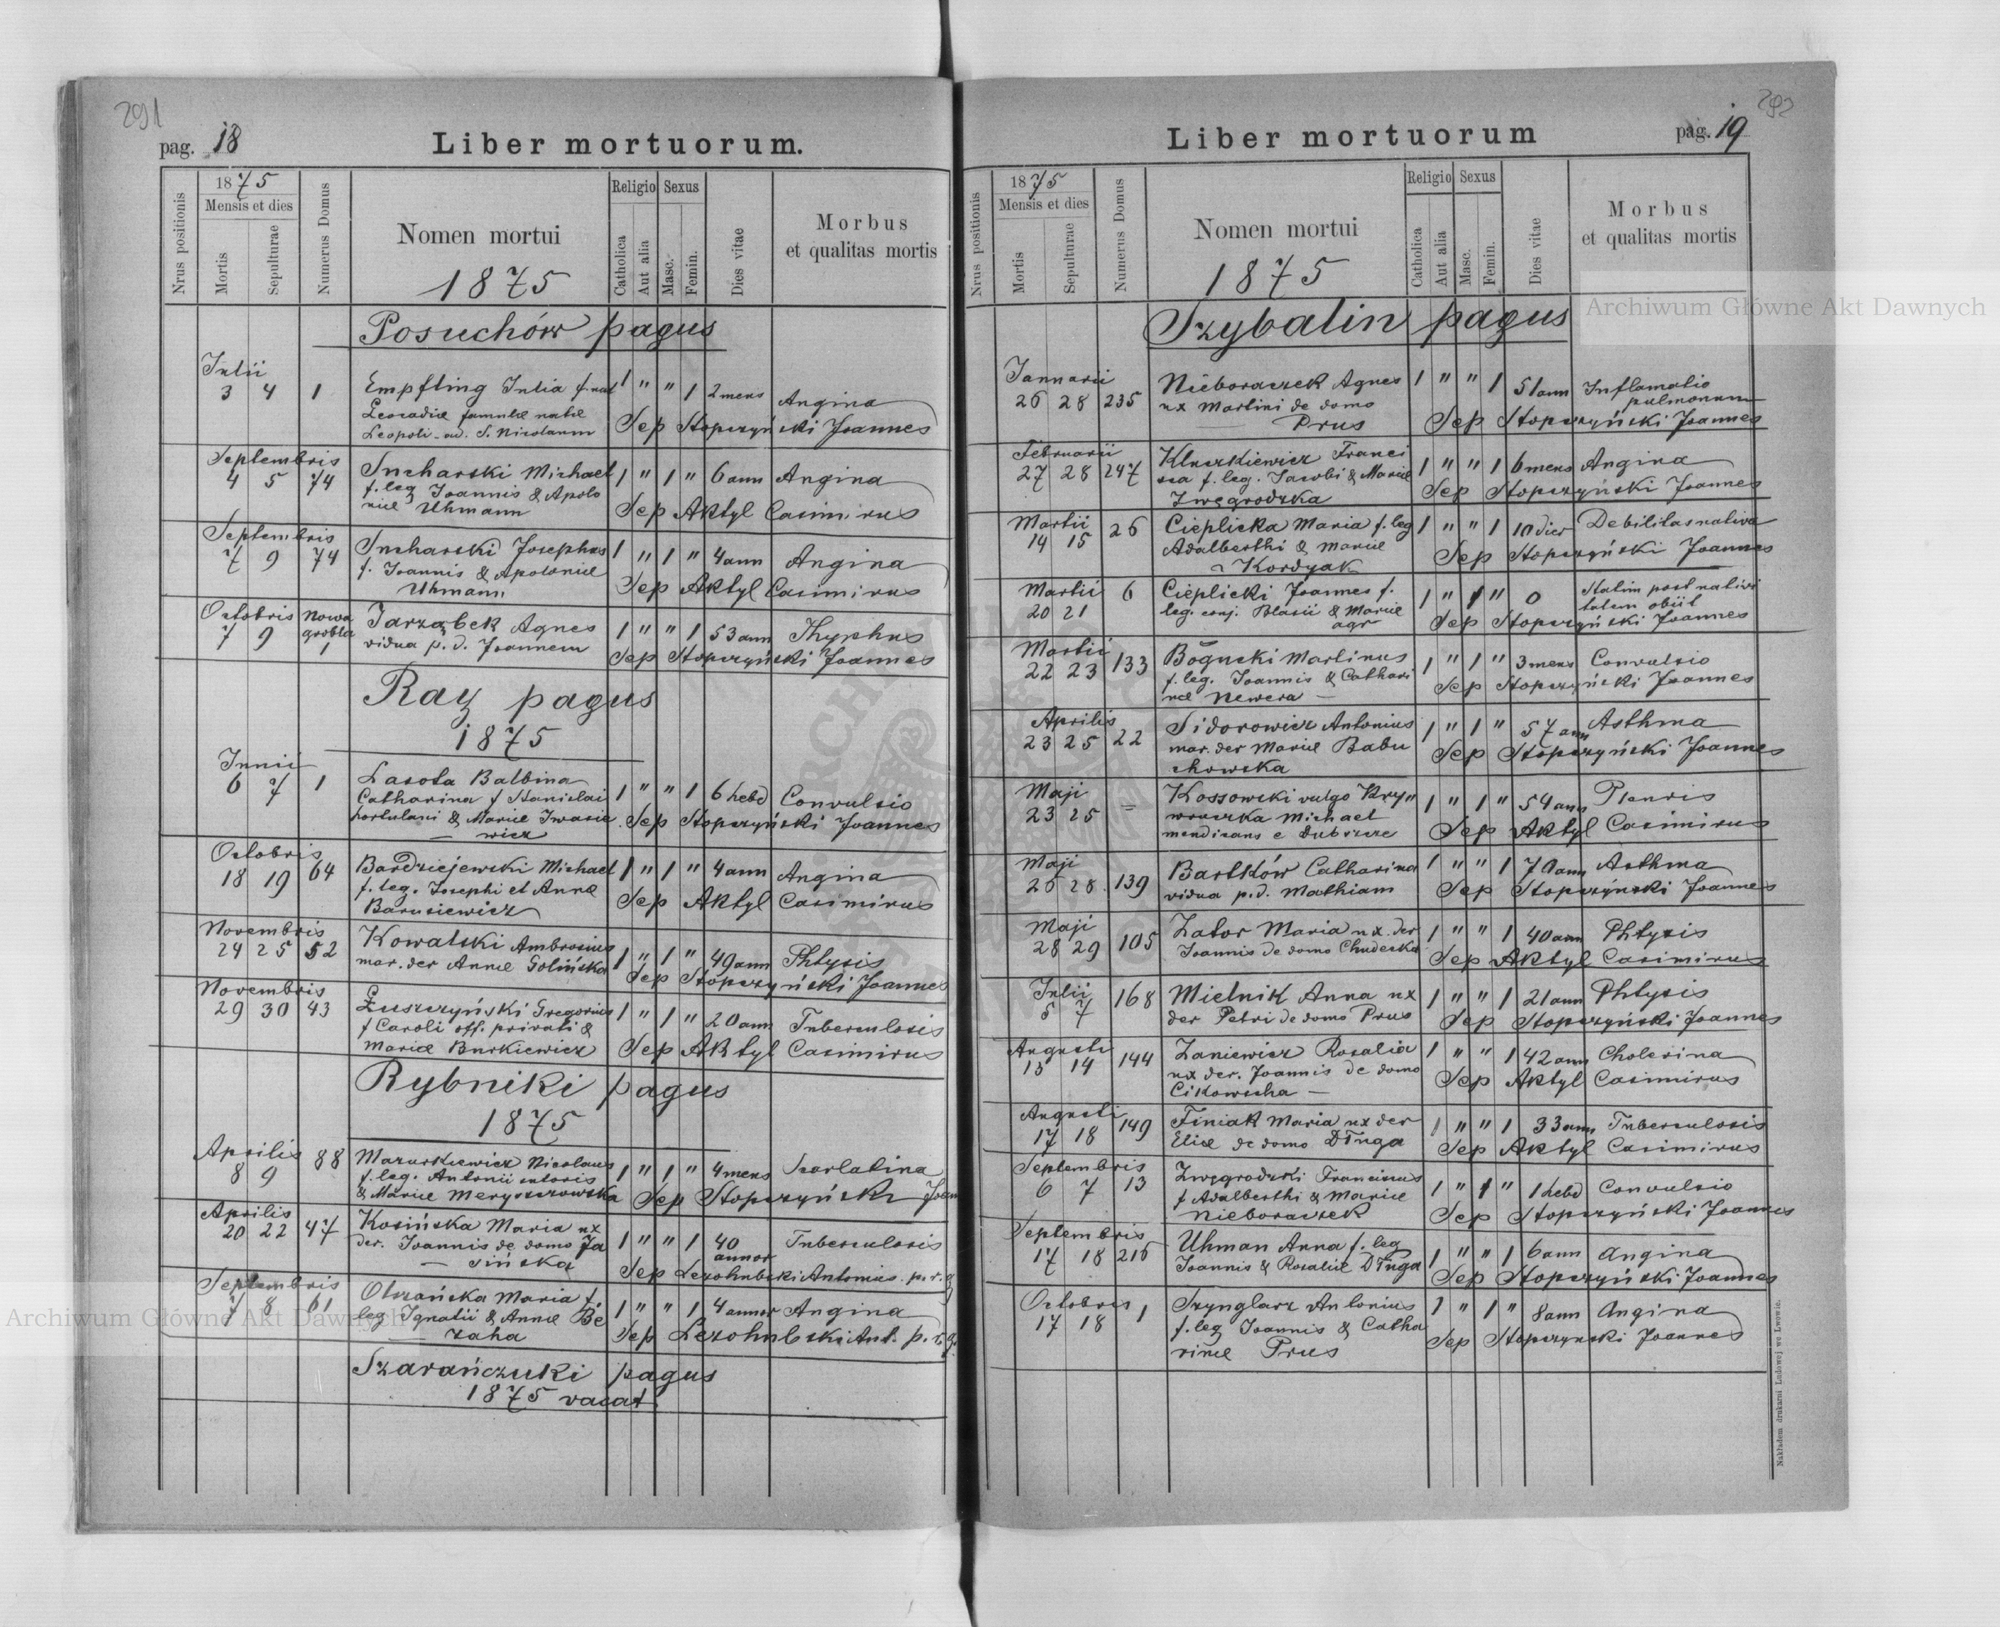 291
pag. 18
Liber mortuorum.
Nrus positionis
1875
Mensis et dies
Mortis
Sepulturae
Numerus Domus
Nomen mortui
1875
Religio
Catholica
Aut alia
Sexus
Masc.
Femin.
Dies vitae
Morbus
et qualitas mortis
Posuchów pagus
Julii
3 4 1 Empfling Julia f. nat 1 " " 1 2 mens Angina
Leocadiæ famulæ natæ
Leopoli ad. S. Nicolaum Sep Stopczyński Joannes
Septembris
4 5 74 Sucharski Michael 1 " 1 " 6 ann Angina
f. leg Joannis & Apolo
niæ Uhmann Sep Aktyl Casimirus
Septembris
7 9 74 Sucharski Josephus 1 " 1 " 4 ann Angina
f. Joannis & Apoloniæ
Uhmann Sep Aktyl Casimirus
Octobris Nowa
7 9 grobla 1 Jarząbek Agnes 1 " " 1 53 ann Thyphus
vidua p. d. Joannem Sep Stopczyński Joannes
Ray pagus
1875
Junii
6 7 1 Lasota Balbina 1 " " 1 6 hebd Convulsio
Catharina f Stanislai
hortulani & Mariæ Iwasie
wicz Sep Stopczyński Joannes
Octobris
18 19 64 Bardziejewski Michael 1 " 1 " 4 ann Angina
f. leg. Josephi et Annæ
Barusiewicz Sep Aktyl Casimirus
Novembris
24 25 52 Kowalski Ambrosius 1 " 1 " 49 ann Phtysis
mar. der Annæ Golińska Sep Stopczyński Joannes
Novembris
29 30 43 Łuszczyński Gregorius 1 " 1 " 20 ann Tuberculosis
f Caroli off. privati &
Mariæ Burkiewicz Sep Aktyl Casimirus
Rybniki pagus
1875
Aprilis
8 9 88 Mazurkiewicz Nicolaus 1 " 1 " 4 mens Scarlatina
f. leg. Antonii sutoris
& Mariæ Meryszczowska Sep Stopczyński Joan
Aprilis
20 22 47 Kosińska Maria ux 1 " " 1 40 annor Tuberculosis
der. Joannis de domo Ja
sińska Sep Lezohubski Antonius. p. r. g
Septembris
7 8 61 Olszańska Maria f. 1 " " 1 4 annor Angina
leg Ignatii & Annæ Bé
zaha Sep Lezohubski Ant. p. r. g.
Szarańczuki pagus
1875 vacat
292
pag. 19
Liber mortuorum
Nrus positionis
1875
Mensis et dies
Mortis
Sepulturae
Numerus Domus
Nomen mortui
1875
Religio
Catholica
Aut alia
Sexus
Masc.
Femin.
Dies vitae
Morbus
et qualitas mortis
Szybalin pagus
Januarii
26 28 235 Nieboraczek Agnes 1 " " 1 51 ann Inflamatio
pulmonum
ux Martini de domo
Prus Sep Stopczyński Joannes
Februarii
27 28 247 Kluczkiewicz Franci 1 " " 1 6 mens Angina
sca f. leg. Jacobi & Mariæ
Zwęgrodzka Sep Stopczyński Joannes
Martii
14 15 26 Cieplicka Maria f. leg 1 " " 1 10 dier Debilitas nativa
Adalberthi & Mariæ
Kordyak Sep Stopczyński Joannes
Martii
20 21 6 Cieplicki Joannes f. 1 " 1 " 0 Statim post nativi
tatem obiit
leg. conj. Blasii & Mariæ
agr Sep Stopczyński Joannes
Martii
22 23 133 Bogucki Martinus 1 " 1 " 3 mens Convulsio
f. leg. Joannis & Cathari
næ Newera Sep Stopczyński Joannes
Aprilis
23 25 22 Sidorowicz Antonius 1 " 1 " 57 ann Asthma
mar. der Mariæ Babu
chowska Sep Stopczyński Joannes
Maji
23 25 = Kossowski vulgo Kry" 1 " 1 " 54 ann Pleuris
wuczka Michael
mendicans e Dubszcze Sep Aktyl Casimirus
Maji
26 28 139 Bartków Catharina 1 " " 1 70 ann Asthma
vidua p. d. Mathiam Sep Stopczyński Joannes
Maji
28 29 105 Zator Maria ux. der 1 " " 1 40 ann Phtysis
Joannis de domo Chudecka Sep Aktyl Casimirus
Julii
5 7 168 Mielnik Anna ux 1 " " 1 21 ann Phtysis
der Petri de domo Prus Sep Stopczyński Joannes
Augusti
13 14 144 Zaniewicz Rosalia 1 " " 1 42 ann Cholerina
ux der. Joannis de domo
Cikowscha Sep Aktyl Casimirus
Augusti
17 18 149 Finiak Maria ux der 1 " " 1 33 ann Tuberculosis
Eliæ de domo Długa Sep Aktyl Casimirus
Septembris
6 7 13 Zwęgrodzki Franciscus 1 " 1 " 1 hebd Convulsio
f Adalberthi & Mariæ
Nieboraczek Sep Stopczyński Joannes
Septembris
17 18 216 Uhman Anna f. leg 1 " " 1 6 ann Angina
Joannis & Rosaliæ Długa Sep Stopczyński Joannes
Octobris
17 18 1 Szynglarz Antonius 1 " 1 " 8 ann Angina
f. leg Joannis & Catha
rinæ Prus Sep Stopczynski Joannes
Nakładem drukarni Ludowej we Lwowie.
Archiwum Główne Akt Dawnych
Archiwum Główne Akt Dawnych